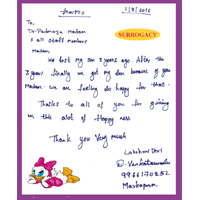 1/8/2026
To,
Dr. Padmaja Madam
& all staff members
SURROGACY
Madam
We lost my son 3 years ago. After the
3 years finally we got my son because of you
Madam. We are feeling so happy for that.
Thanks to all of you for giving
us this alot of Happy ness
Thank you Very much
Lakshmi Devi
D. Venkateswarlu
9966170252
Markapuram.